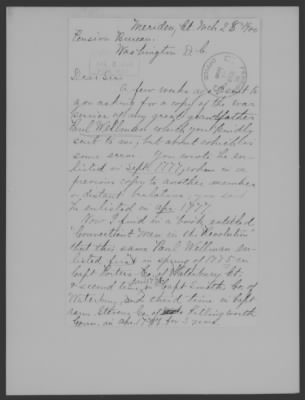 Meriden, Ct. Mch 28 1900
Pension Bureau.
Washington D. C.
Dear Sir
A few weeks ago I sent to
you asking for a copy of the war
service of my great grandfather
Paul Wellman which you kindly
sent to me, but about which
some seem You wrote he en-
listed in Sept. 1777, when in a
previous copy to another member
or distant relative you said
he enlisted in Apr 1777.
Now I find in a book entitled
"Connecticut Men in the Revolution"
that this same Paul Wellman en-
listed first in spring of 1775 in
Capt Porters Co. of Waterbury Ct.
& second time, in Capt Smith, Co. of
Waterbury, and third time in Capt
Aaron Stevens Co. of Killingworth
Conn, in Apr 1777 for 3 years